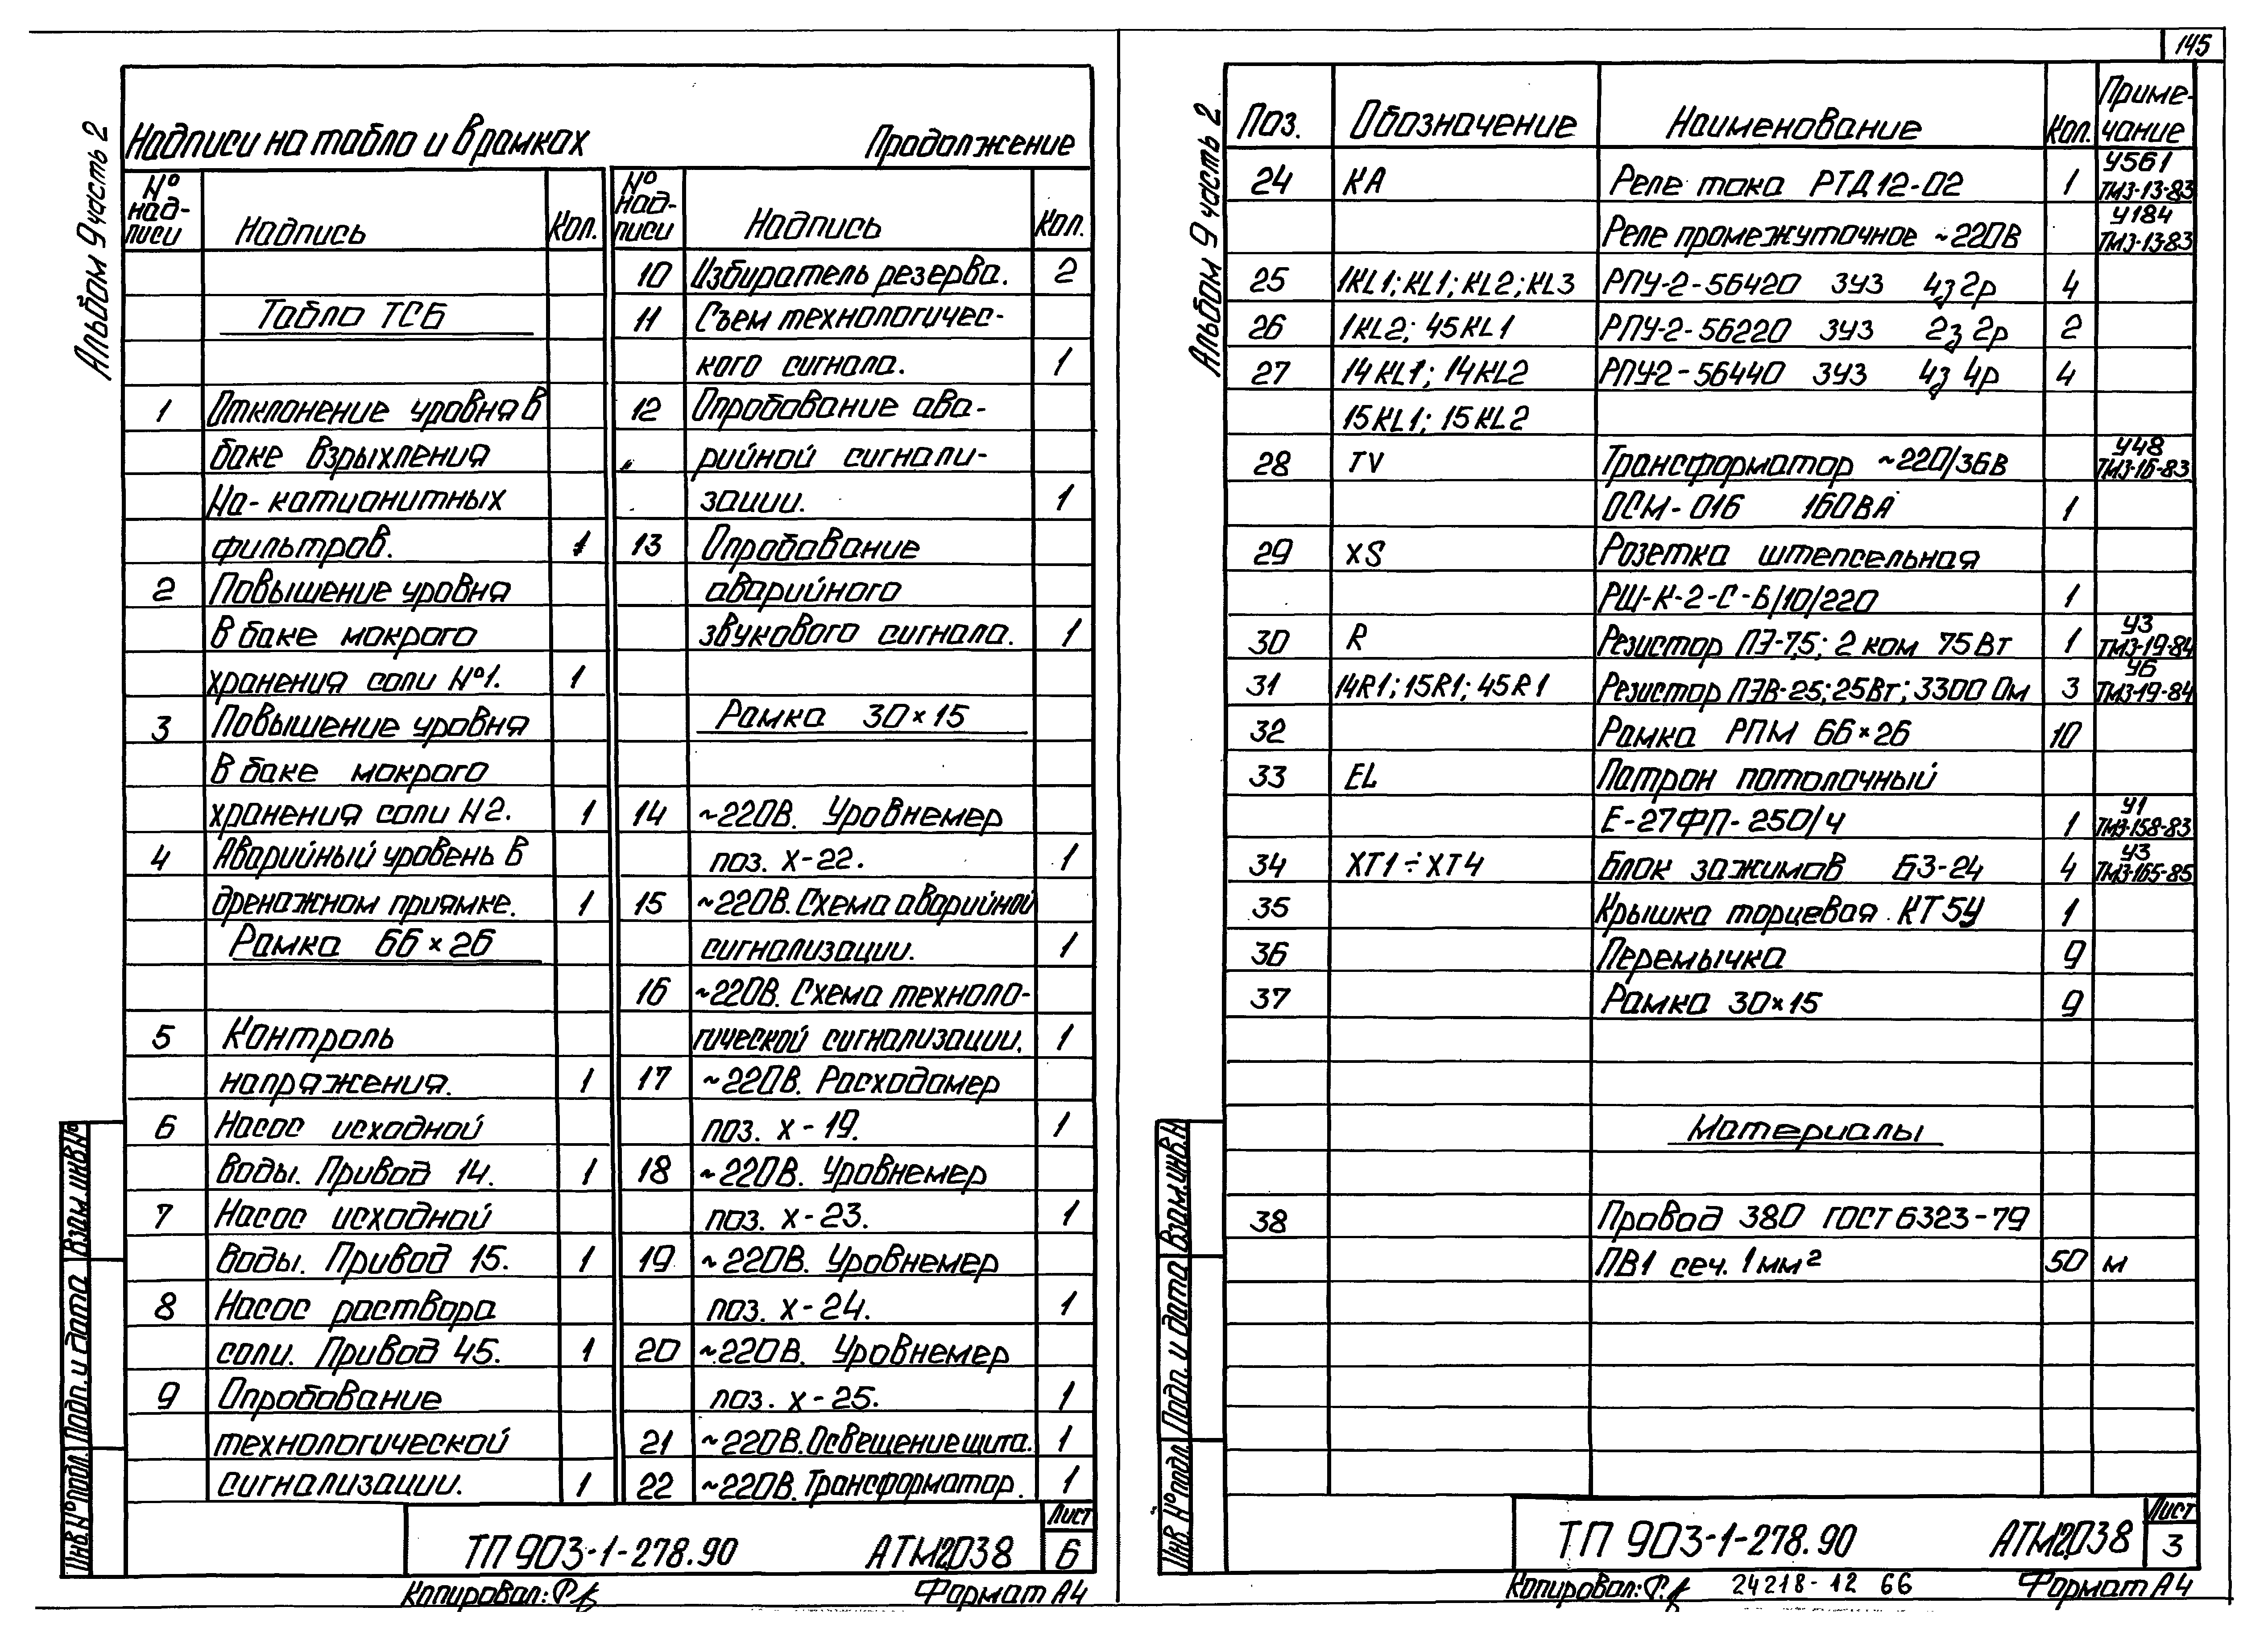 145
Альбом 9 часть 2
Надписи на табло и в рамках Продолжение
№ надписи Надпись Кол.
Табло ТСБ
1 Отклонение уровня в
баке взрыхления
Na-катионитных
фильтров. 1
2 Повышение уровня
в баке мокрого
хранения соли №1. 1
3 Повышение уровня
в баке мокрого
хранения соли N2. 1
4 Аварийный уровень в
дренажном приямке. 1
Рамка 66×26
5 Контроль
напряжения. 1
6 Насос исходной
воды. Привод 14. 1
7 Насос исходной
воды. Привод 15. 1
8 Насос раствора
соли. Привод 45. 1
9 Опробование
технологической
сигнализации. 1
№ надписи Надпись Кол.
10 Избиратель резерва. 2
11 Съем технологичес-
кого сигнала. 1
12 Опробование ава-
рийной сигнали-
зации. 1
13 Опробование
аварийного
звукового сигнала. 1
Рамка 30×15
14 ~220В. Уровнемер
поз. х-22. 1
15 ~220В. Схема аварийной
сигнализации. 1
16 ~220В. Схема техноло-
гической сигнализации. 1
17 ~220В. Расходомер
поз. х-19. 1
18 ~220В. Уровнемер
поз. х-23. 1
19 ~220В. Уровнемер
поз. х-24. 1
20 ~220В. Уровнемер
поз. х-25. 1
21 ~220В. Освещение щита. 1
22 ~220В. Трансформатор. 1
Взам.инв.№
Подп. и дата
Инв.№ подл.
ТП 903-1-278.90 АТМ2.038 Лист 6
Копировал: Формат А4
Альбом 9 часть 2
Поз. Обозначение Наименование Кол. Приме-
чание
24 KA Реле тока РТД12-02 1 У561
ТМ3-13-83
Реле промежуточное ~220В У184
ТМ3-13-83
25 1KL1; KL1; KL2; KL3 РПУ-2-56420 3У3 4з 2р 4
26 1KL2; 45KL1 РПУ-2-56220 3У3 2з 2р 2
27 14KL1; 14KL2 РПУ-2-56440 3У3 4з 4р 4
15KL1; 15KL2
28 TV Трансформатор ~220/36В У48
ТМ3-16-83
ОСМ-016 160ВА 1
29 XS Розетка штепсельная
РШ-К-2-С-Б/10/220 1
30 R Резистор ПЭ-7,5; 2 ком 75 Вт 1 У3
ТМ3-19-84
31 14R1; 15R1; 45R1 Резистор ПЭВ-25; 25Вт; 3300 Ом 3 У6
ТМ3-19-84
32 Рамка РПМ 66×26 10
33 EL Патрон потолочный
Е-27ФП-250/4 1 У1
ТМ3-158-83
34 XT1÷XT4 Блок зажимов БЗ-24 4 У3
ТМ3-165-85
35 Крышка торцевая КТ5У 1
36 Перемычка 9
37 Рамка 30×15 9
Материалы
38 Провод 380 ГОСТ 6323-79
ПВ1 сеч. 1мм² 50 м
Взам.инв.№
Подп. и дата
Инв.№ подл.
ТП 903-1-278.90 АТМ2.038 Лист 3
Копировал: 24218-12 66 Формат А4